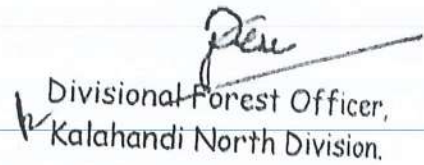 Divisional Forest Officer,
Kalahandi North Division.